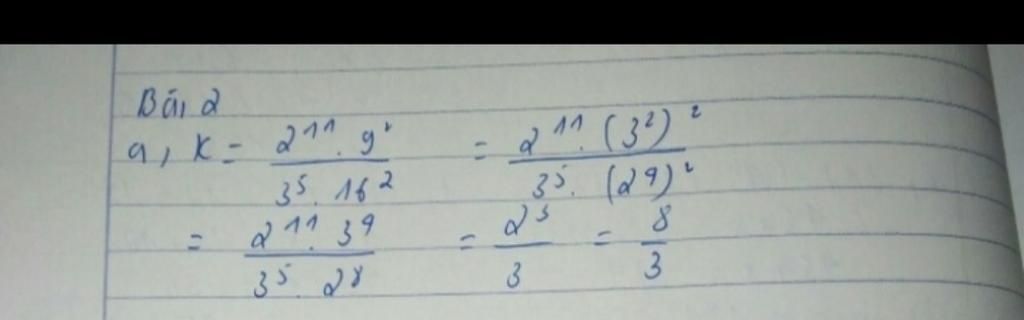 Bài 2
a, K = \frac{2^{11} . 9^2}{3^5 . 16^2} = \frac{2^{11} . (3^2)^2}{3^5 . (2^4)^2}
= \frac{2^{11} . 3^4}{3^5 . 2^8} = \frac{2^3}{3} = \frac{8}{3}